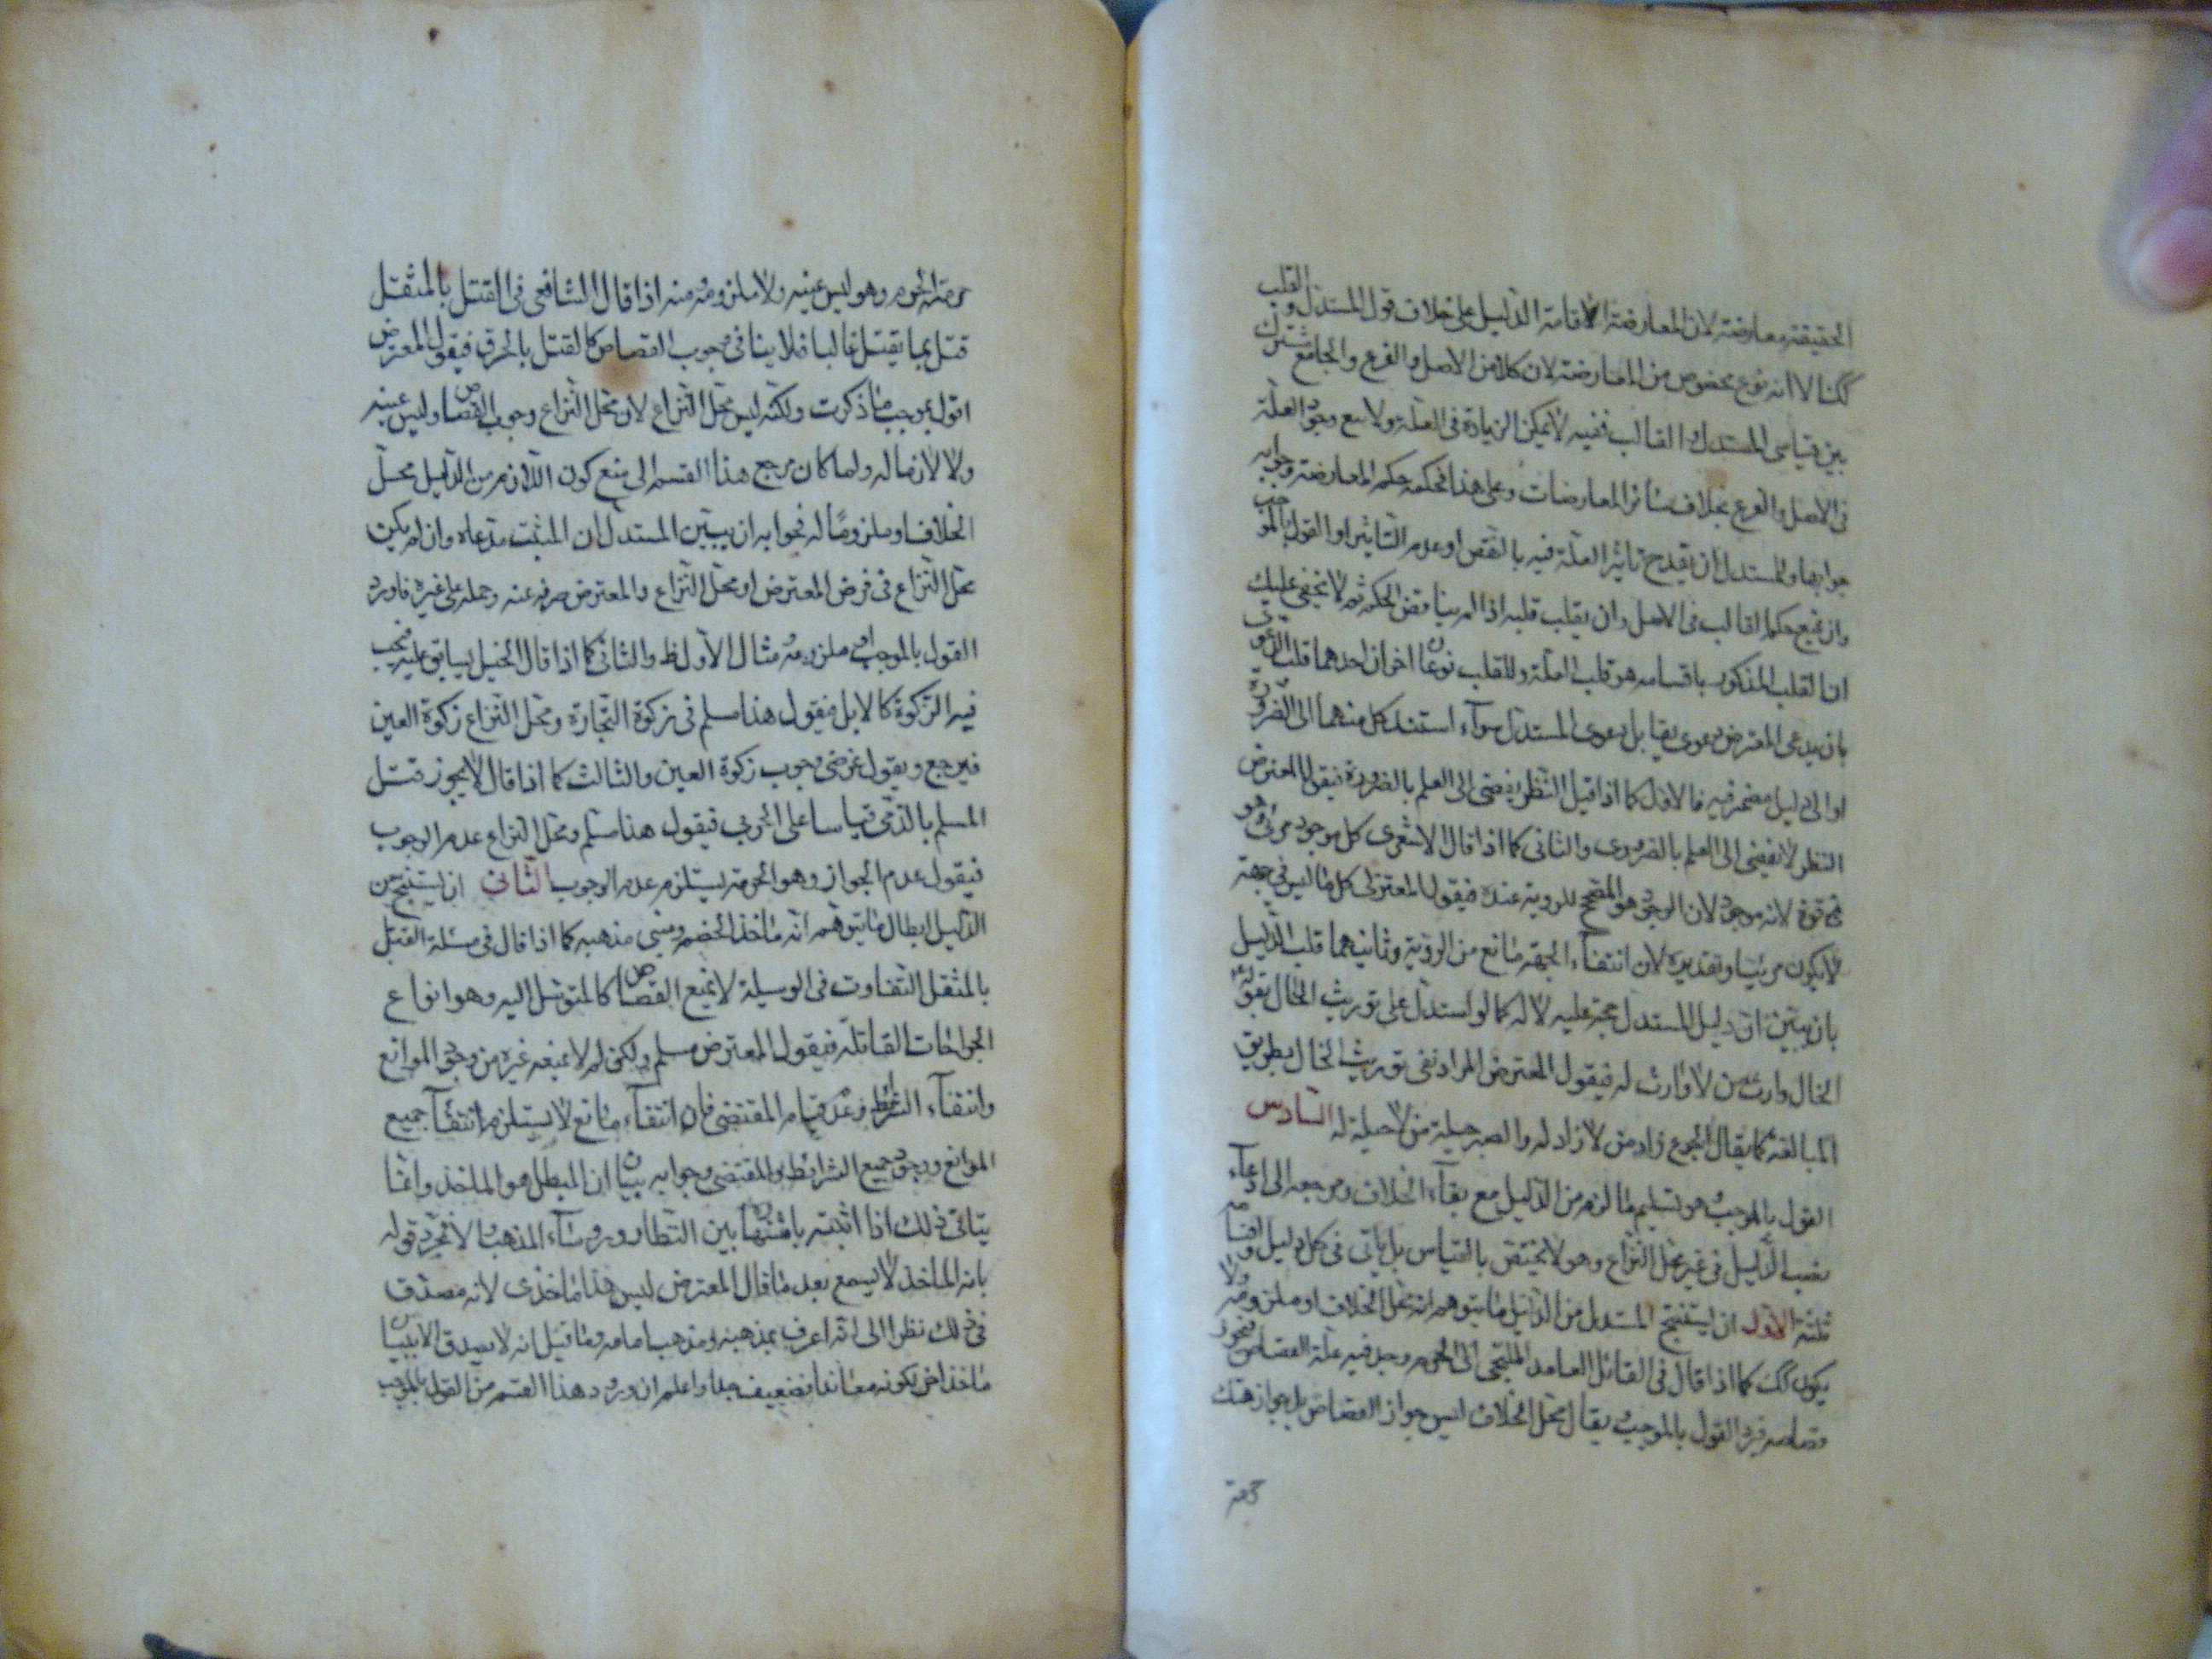 الحقيقة معارضة لان المعارضة اقامة الدليل على خلاف قول المستدل والقلب
كك الا انه نوع مخصوص من المعارضة لان كلا من الاصل والفرع والجامع مشترك
بين قياسى المستدل والقالب ففيه لا يمكن الزيادة فى العلة ولا منع وجود العلة
فى الاصل والفرع بخلاف سائر المعارضات وعلى هذا فحكمه حكم المعارضة وجوابه
جوابها وللمستدل ان يقدح تاثير العلة فيه بالنقض او عدم التاثير او القول بالموجب
وان يمنع حكم القالب فى الاصل وان يقلب قلبه اذا لم يناقض الحكم ثم لا يخفى عليك
ان القلب المذكور باقسامه هو قلب العلة وللقلب نوعان اخران احدهما قلب الدعوى
بان يدعى المعترض دعوى يقابل دعوى المستدل سوآء استند كل منهما الى الضرورة
او الى دليل مضمر فيه فالاول كما اذا قيل النظر يفضى الى العلم بالضرورة فيقول المعترض
النظر لا يفضى الى العلم بالضرورى والثانى كما اذا قال الاشعرى كل موجود مرئى وهو
فى قوة لانه موجود لان الوجود هو المصحح للروية عنده فيقول المعتزلى كل ما ليس فى جهة
لا يكون مرئيا وتقديره لان انتفآء الجهة مانع من الروية وثانيهما قلب الدليل
بان يبين ان دليل المستدل حجة عليه لا له كما لو استدل على توريث الخال بقوله
الخال وارث من لا وارث له فيقول المعترض المراد نفى توريث الخال بطريق
المبالغة كما يقال الجوع زاد من لا زاد له والصبر حيلة من لا حيلة له السادس
القول بالموجب هو تسليم ما لزم من الدليل مع بقآء الخلاف ومرجعه الى ادعآء
نصب الدليل فى غير محل النزاع وهو لا يختص بالقياس بل ياتى فى كل دليل واقسامه
ثلثة الاول ان يستنتج المستدل من الدليل ما يتوهم انه محل الخلاف او ملزومه ولا
يكون كك كما اذا قال فى القاتل العامد الملتجى الى الحرم وجد فيه علة القصاص فيجوز
قصاصه فيرد القول بالموجب يقال محل الخلاف ليس جواز القصاص بل جواز هتك
حرمة
حرمة الحرم وهو ليس عينه ولا ملزومه منه اذا قال الشافعى فى القتل بالمثقل
قتل بما يقتل غالبا فلا ينافى وجوب القصاص كالقتل بالحرق فيقول المعترض
اقول بموجب ما ذكرت ولكنه ليس محل النزاع لان محل النزاع وجوب القصاص وليس عينه
ولا لازما له ولما كان مرجع هذا القسم الى منع كون اللازم من الدليل محل
الخلاف او ملزوما له فجوابه ان يبين المستدل ان المثبت مدعاه وان لم يكن
محل النزاع فى فرض المعترض او محل النزاع والمعترض صرفه عنه وحمله على غيره فاورد
القول بالموجب او ملزومه مثال الاول ظ والثانى كما اذا قال الخيل يسابق عليه فيجب
فيه الزكوة كالابل فيقول هذا مسلم فى زكوة التجارة ومحل النزاع زكوة العين
فيرجع ويقول غرضى وجوب زكوة العين والثالث كما اذا قال لا يجوز قتل
المسلم بالذمى قياسا على الحربى فيقول هذا مسلم ومحل النزاع عدم الوجوب
فيقول عدم الجواز وهو الحرمة يستلزم عدم الوجوب الثانى ان يستنتج من
الدليل ابطال ما يتوهم انه ماخذ الخصم ومبنى مذهبه كما اذا قال فى مسئلة القتل
بالمثقل التفاوت فى الوسيلة لا يمنع القصاص كالمتوسل اليه وهو انواع
الجراحات القاتلة فيقول المعترض مسلم ولكن لم لا يمنعه غيره من وجود الموانع
وانتفآء الشرائط وعدم قيام المقتضى فان انتفآء مانع لا يستلزم انتفآء جميع
الموانع ووجود جميع الشرائط والمقتضى وجوابه بيان ان المبطل هو الماخذ وانما
يتاتى ذلك اذا اثبته باشتهاره بين النظار ورؤسآء المذهب لا بمجرد قوله
بانه الماخذ لا يسمع بعد ما قال المعترض ليس هذا ماخذى لانه مصدق
فى ذلك نظرا الى انه اعرف بمذهبه ومذهب امامه وما قيل انه لا يصدق الا ببيان
ماخذ اخر لكونه معاندا فضعيف جدا واعلم ان ورود هذا القسم من القول بالموجب